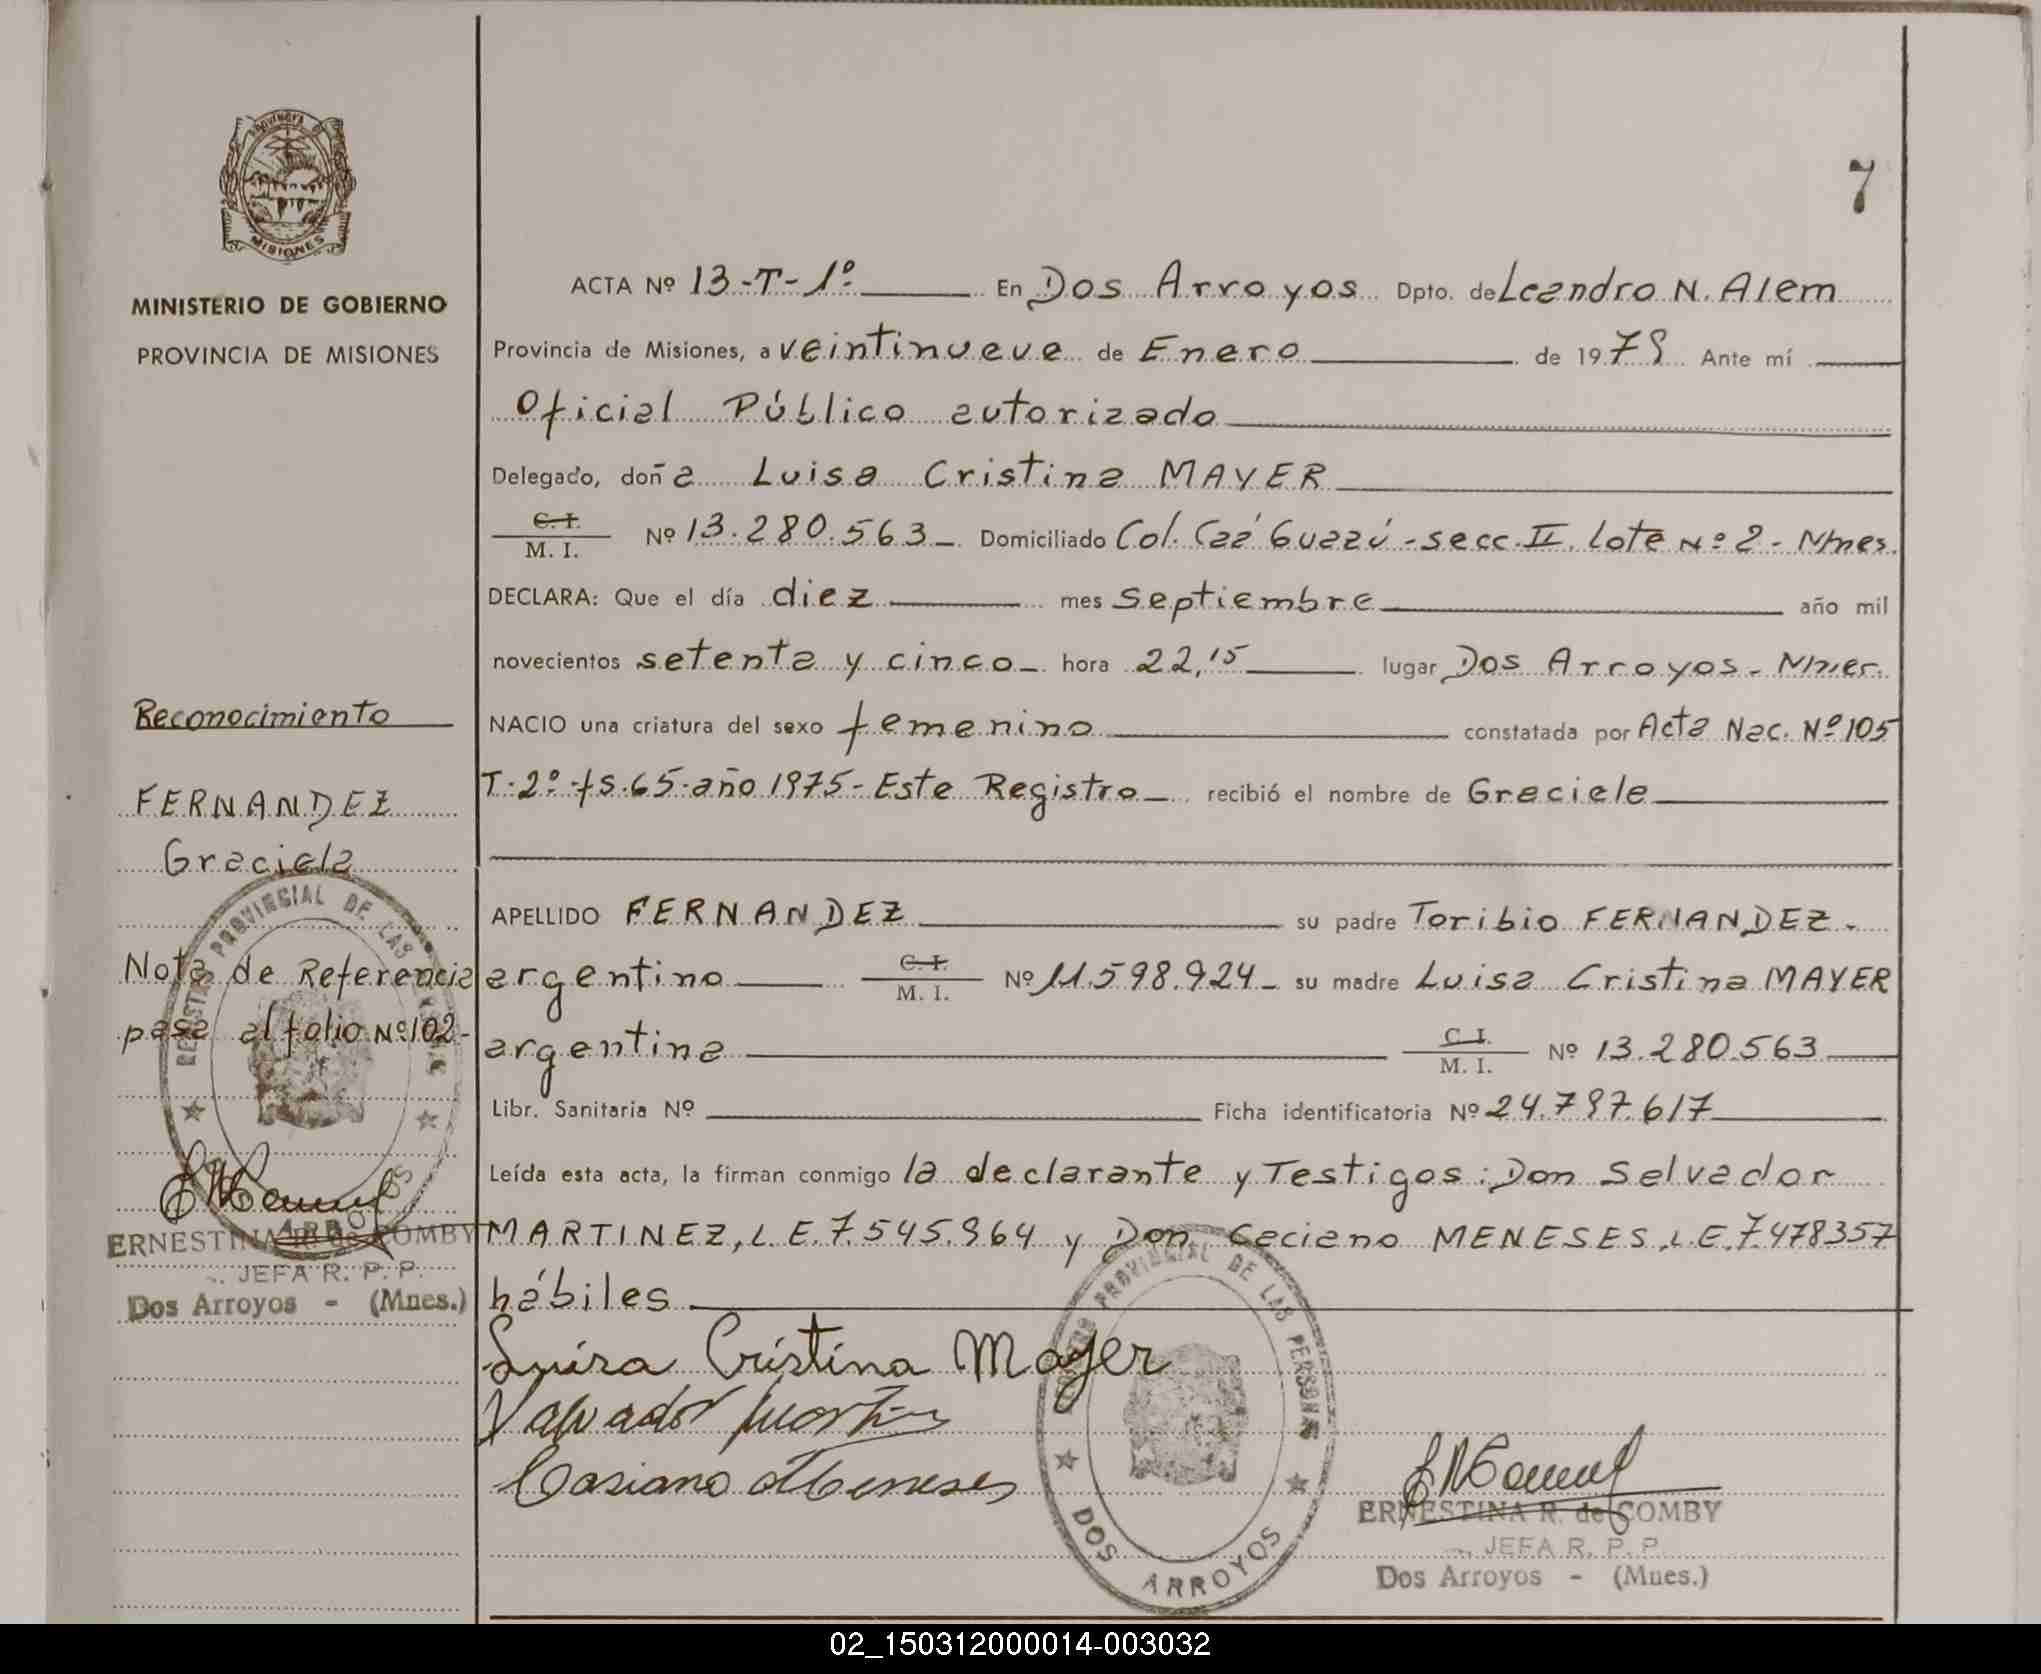 7
PROVINCIA D
MISIONES
MINISTERIO DE GOBIERNO
PROVINCIA DE MISIONES
Reconocimiento
FERNANDEZ
Graciela
Nota de Referencia
pasa al folio Nº 102-
REGISTRO PROVINCIAL DE LAS
ARROYOS
ERNESTINA R. de COMBY
JEFA R. P. P.
Dos Arroyos - (Mnes.)
ACTA Nº 13-T-1º En Dos Arroyos Dpto. de Leandro N. Alem
Provincia de Misiones, a veintinueve de Enero de 1979 Ante mí
Oficial Público autorizado
Delegado, doña Luisa Cristina MAYER
C. I.
M. I. Nº 13.280.563_ Domiciliado Col. Caá Guazú - secc. II. Lote Nº 2 - Mnes.
DECLARA: Que el día diez mes septiembre año mil
novecientos setenta y cinco_ hora 22,15 lugar Dos Arroyos - Mnes.
NACIO una criatura del sexo femenino constatada por Acta Nac. Nº 105
T. 2º. fs. 65. año 1975 - Este Registro_ recibió el nombre de Graciela
APELLIDO FERNANDEZ su padre Toribio FERNANDEZ -
argentino C. I.
M. I. Nº 11.598.924_ su madre Luisa Cristina MAYER
argentina C. I.
M. I. Nº 13.280.563
Libr. Sanitaria Nº Ficha identificatoria Nº 24.797.617
Leída esta acta, la firman conmigo la declarante y Testigos: Don Salvador
MARTINEZ, L.E. 7.545.964 y Don Casiano MENESES, L.E. 7.478357
hábiles
Luisa Cristina Mayer
Salvador Martinez
Casiano Meneses
REGISTRO PROVINCIAL DE LAS PERSONAS
DOS ARROYOS
ERNESTINA R. de COMBY
JEFA R. P. P.
Dos Arroyos - (Mnes.)
02_150312000014-003032